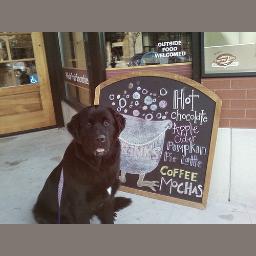 OUTSIDE
FOOD
WELCOMED
Hot
chocolate
Apple
Cider
Pumpkin
Pie Latte
COFFEE
MOCHAS